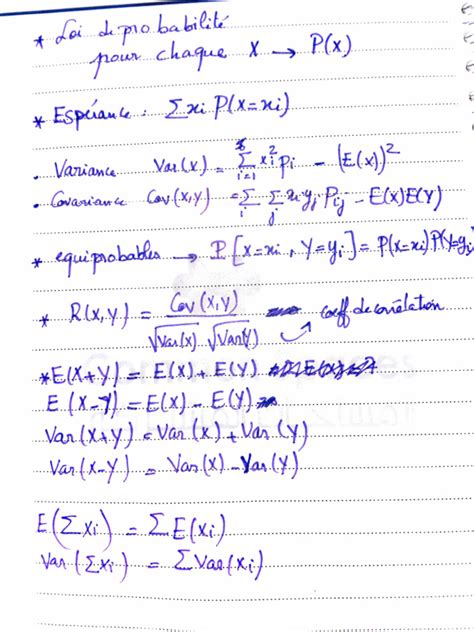 * Loi de probabilité
pour chaque X → P(x)
* Espérance : Σxi P(X=xi)
. Variance Var(x) = Σ i=1 xi² pi - (E(x))²
. Covariance Cov(x,y) = Σ i Σ j xi yj Pij - E(x)E(Y)
* equiprobables → P[X=xi, Y=yi] = P(X=xi)P(Y=yi)
* R(x,y) = Cov(x,y) / √Var(x) √Var(Y) → coeff de corrélation
*E(X+Y) = E(X) + E(Y)
E(X-Y) = E(X) - E(Y)
Var(X+Y) = Var(X) + Var(Y)
Var(X-Y) = Var(X) - Var(Y)
E(ΣXi) = ΣE(Xi)
Var(ΣXi) = ΣVar(Xi)